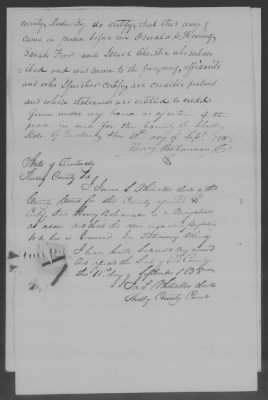 county Kentucky do certify, that this day
came in person before me Oswald Thomas,
Sarah Ford and Israel Christie who subscribed
and was sworn to the foregoing affidavits
and who I further certify are credible persons
and whose statements are entitled to credit
Given under my hand as a justice of the
peace in and for the County of Shelby
State of Kentucky this 10th day of Septr 18
Henry Bohannon
State of Kentucky
Shelby County Sct
I James S. Whitaker clerk of the
County Court for the County aforesaid do
Certify that Henry Bohannon is a Magistrate
as above and that the above signature purporting
to be his is Genuine In Testimony Whereof
I have hereto subscribed my name
and affixed the Seal of said County
this 11th day of September 1838
Js. S. Whitaker clerk
Shelby County Court